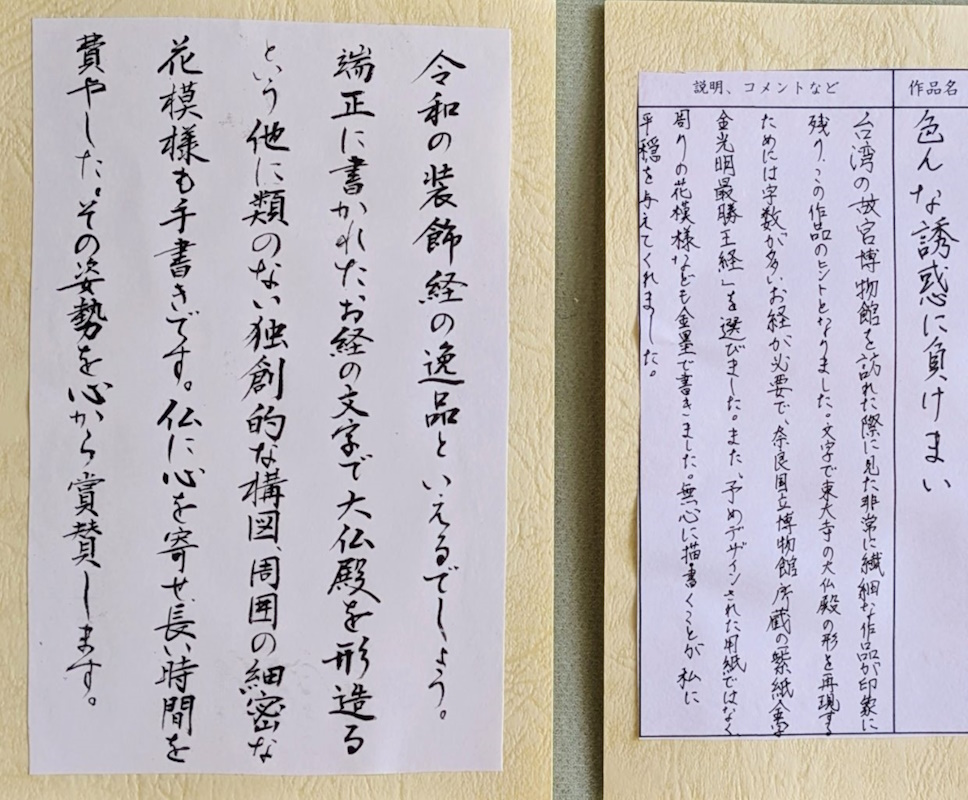 令和の装飾経の逸品といえるでしょう。
端正に書かれたお経の文字で大仏殿を形造る
という他に類のない独創的な構図、周囲の細密な
花模様も手書きです。仏に心を寄せ、長い時間を
費やした。その姿勢を心から賞賛します。
作品名
色んな誘惑に負けまい
説明、コメントなど
台湾の故宮博物館を訪れた際に見た非常に繊細な作品が印象に
残り、この作品のヒントとなりました。文字で東大寺の大仏殿の形を再現する
ためには字数が多いお経が必要で、奈良国立博物館所蔵の紫紙金字
金光明最勝王経」を選びました。また、予めデザインされた用紙ではなく、
周りの花模様なども金墨で書きました。無心に描・書くことが私に
平穏を与えてくれました。